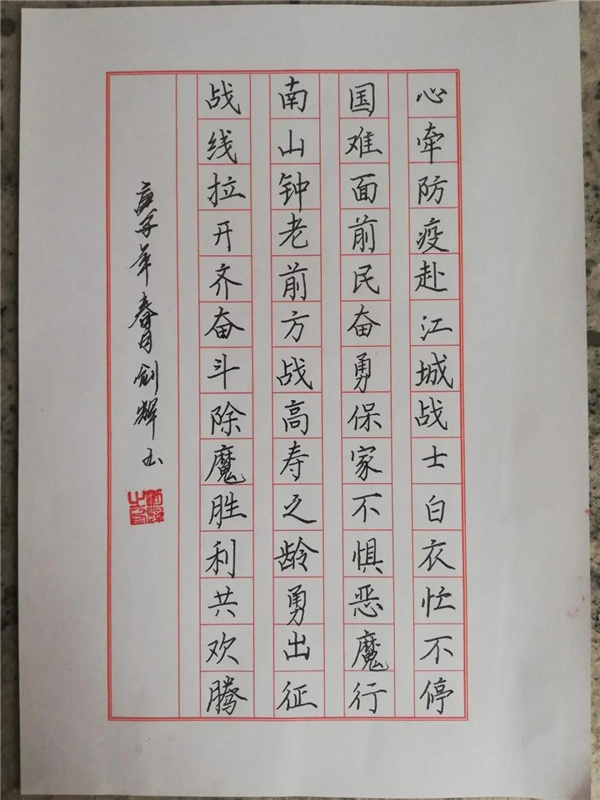 心牵防疫赴江城战士白衣忙不停
国难面前民奋勇保家不惧恶魔行
南山钟老前方战高寿之龄勇出征
战线拉开齐奋斗除魔胜利共欢腾
庚子年春月剑辉书